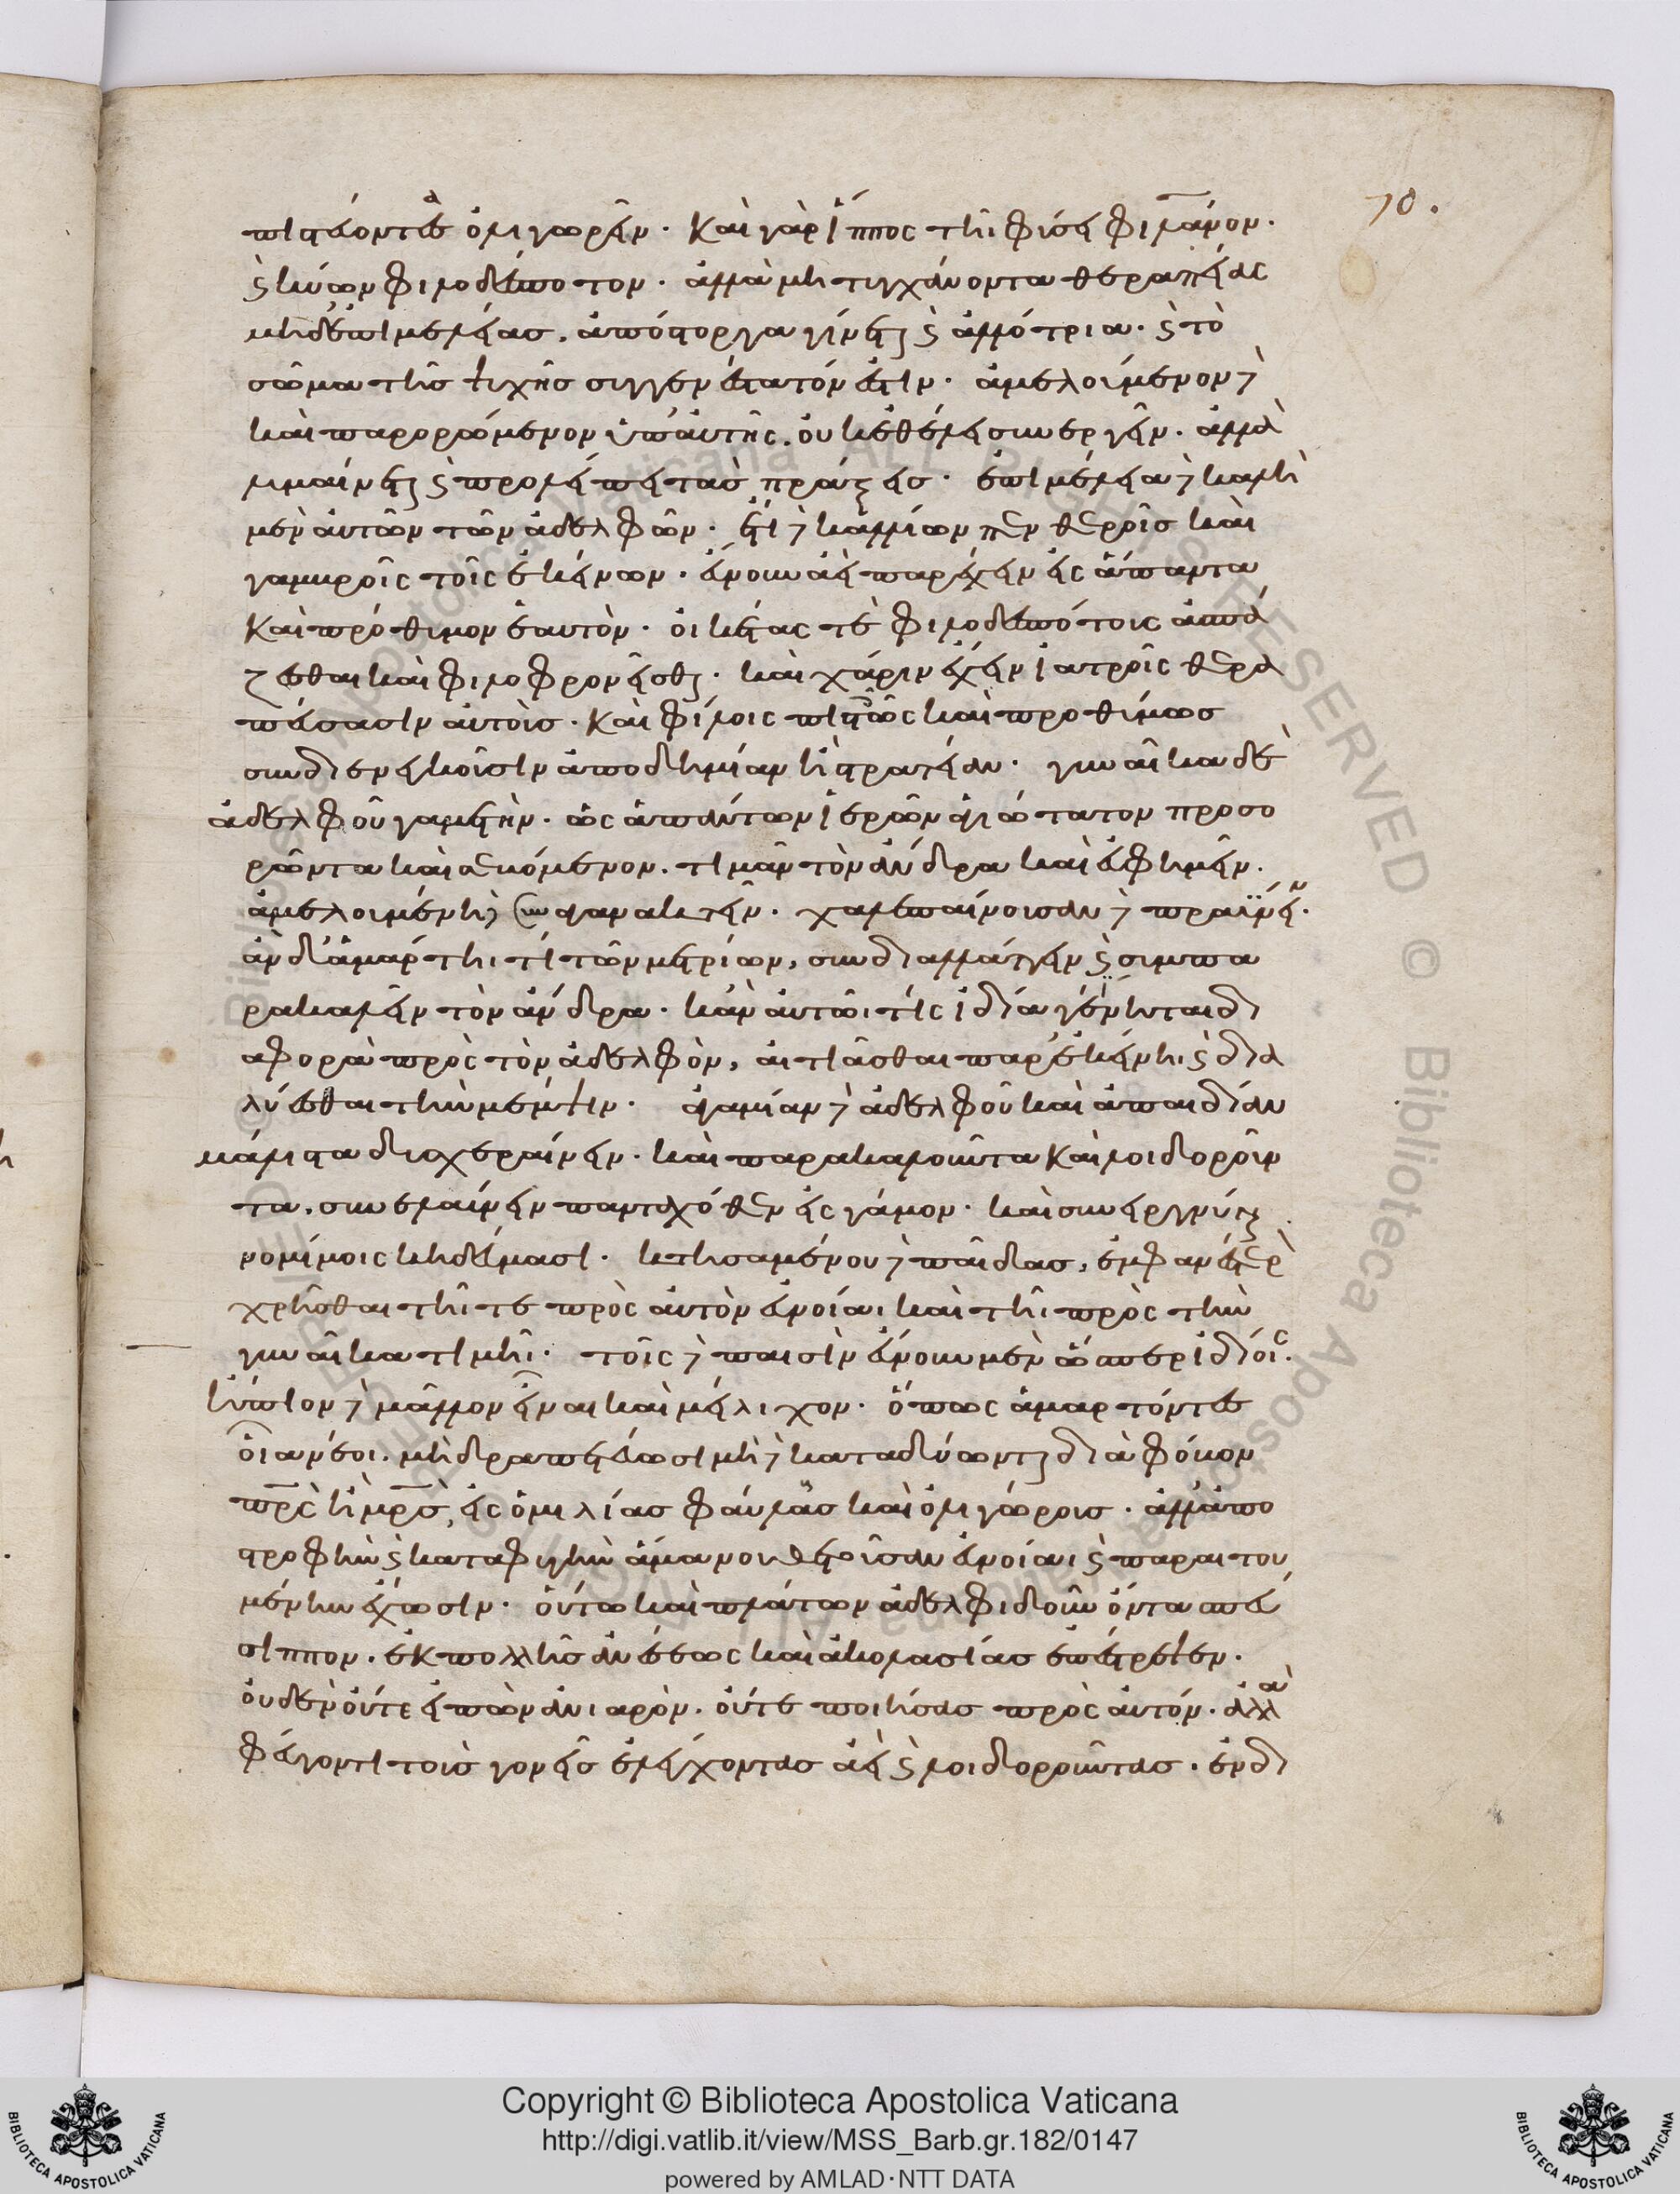 70.
πιστεύοντας ὀλιγωρεῖν· καὶ γὰρ ἵππος τῆι φύσει φιλάνθρωπον·
καὶ κύων φιλοδέσποτον· ἀλλὰ μὴ τυγχάνοντα θεραπείας
μηδ' ἐπιμελείας, ἀπόστοργα γίνεται καὶ ἀλλότρια· καὶ τὸ
σῶμα τῆς ψυχῆς συγγενέστατόν ἐστιν· ἀμελούμενον δὲ
καὶ παρορώμενον ὑπ' αὐτῆς· οὐκ ἐθέλει συνεργεῖν· ἀλλὰ
λυμαίνεται καὶ προλείπει τὰς πράξεις· ἐπιμέλεια δὲ καλὴ
μὲν αὐτῶν τῶν ἀδελφῶν· ἔτι δὲ καλλίων πενθεροῖς καὶ
γαμβροῖς τοῖς ἐκείνων· εὔνουν ἀεὶ παρέχειν εἰς ἅπαντα
καὶ πρόθυμον ἑαυτὸν· οἰκέτας τὲ φιλοδεσπότους ἀσπά
ζεσθαι καὶ φιλοφρονεῖσθαι· καὶ χάριν ἔχειν ἰατροῖς θερα
πεύσασιν αὐτοὺς· καὶ φίλοις πιστῶς καὶ προθύμως
συνδιενεγκοῦσιν ἀποδημίαν ἢ στρατείαν· γυναῖκα δὲ
ἀδελφοῦ γαμετὴν· ὡς ἁπάντων ἱερῶν ἁγιώτατον προσο
ρῶντα καὶ σεβόμενον· τιμᾶν τὸν ἄνδρα καὶ εὐφημεῖν·
ἀμελουμένηι δὲ συναγανακτεῖν· χαλεπαίνουσαν δὲ πραΰνειν·
ἂν δ' ἁμάρτηι τὶ τῶν μετρίων, συνδιαλλάττειν καὶ συμπα
ρακαλεῖν τὸν ἄνδρα· κἂν αὐτῶι τὶς ἰδία γένηται δι
αφορὰ πρὸς τὸν ἀδελφὸν, αἰτιᾶσθαι παρ' ἐκείνηι καὶ δια
λύεσθαι τὴν μέμψιν· ἀγαμίαν δὲ ἀδελφοῦ καὶ ἀπαιδίαν
μάλιστα δυσχεραίνειν· καὶ παρακαλοῦντα καὶ λοιδοροῦν
τα, συνελαύνειν πανταχόθεν εἰς γάμον· καὶ συνειργνύναι
νομίμοις κηδεύμασι· κτησαμένου δὲ παῖδας, ἐμφανέστερον
χρῆσθαι τῆι τε πρὸς αὐτὸν εὐνοίαι καὶ τῆι πρὸς τὴν
γυναῖκα τιμῆι· τοῖς δὲ παισὶν εὔνουν μὲν ὥσπερ ἰδίοις·
ἤπιον δὲ μᾶλλον εἶναι καὶ μείλιχον· ὅπως ἁμαρτόντες
οἷα νέοι· μὴ δραπετεύωσι μὴ δὲ καταδύωνται διὰ φόβον
πρς ἢ μρς, εἰς ὁμιλίας φαύλας καὶ ὀλιγώρους· ἀλλ' ἀπο
τροφὴν καὶ καταφυγὴν ἅμα νουθετοῦσαν εὐνοίαι καὶ παραιτου
μένην ἔχωσιν· οὕτω καὶ πλάτων ἀδελφιδοῦν ὄντα σπεύ
σιππον· ἐκ πολλῆς ἀνέσεως καὶ ἀκολασίας ἐπέστρεψεν·
οὐδὲν οὔτε εἰπὼν ἀνιαρὸν· οὔτε ποιήσας πρὸς αὐτόν· ἀλλὰ
φεύγοντι τοὺς γονεῖς ἐλέγχοντας ἀεὶ καὶ λοιδοροῦντας· ἐνδι
Copyright © Biblioteca Apostolica Vaticana
http://digi.vatlib.it/view/MSS_Barb.gr.182/0147
powered by AMLAD·NTT DATA